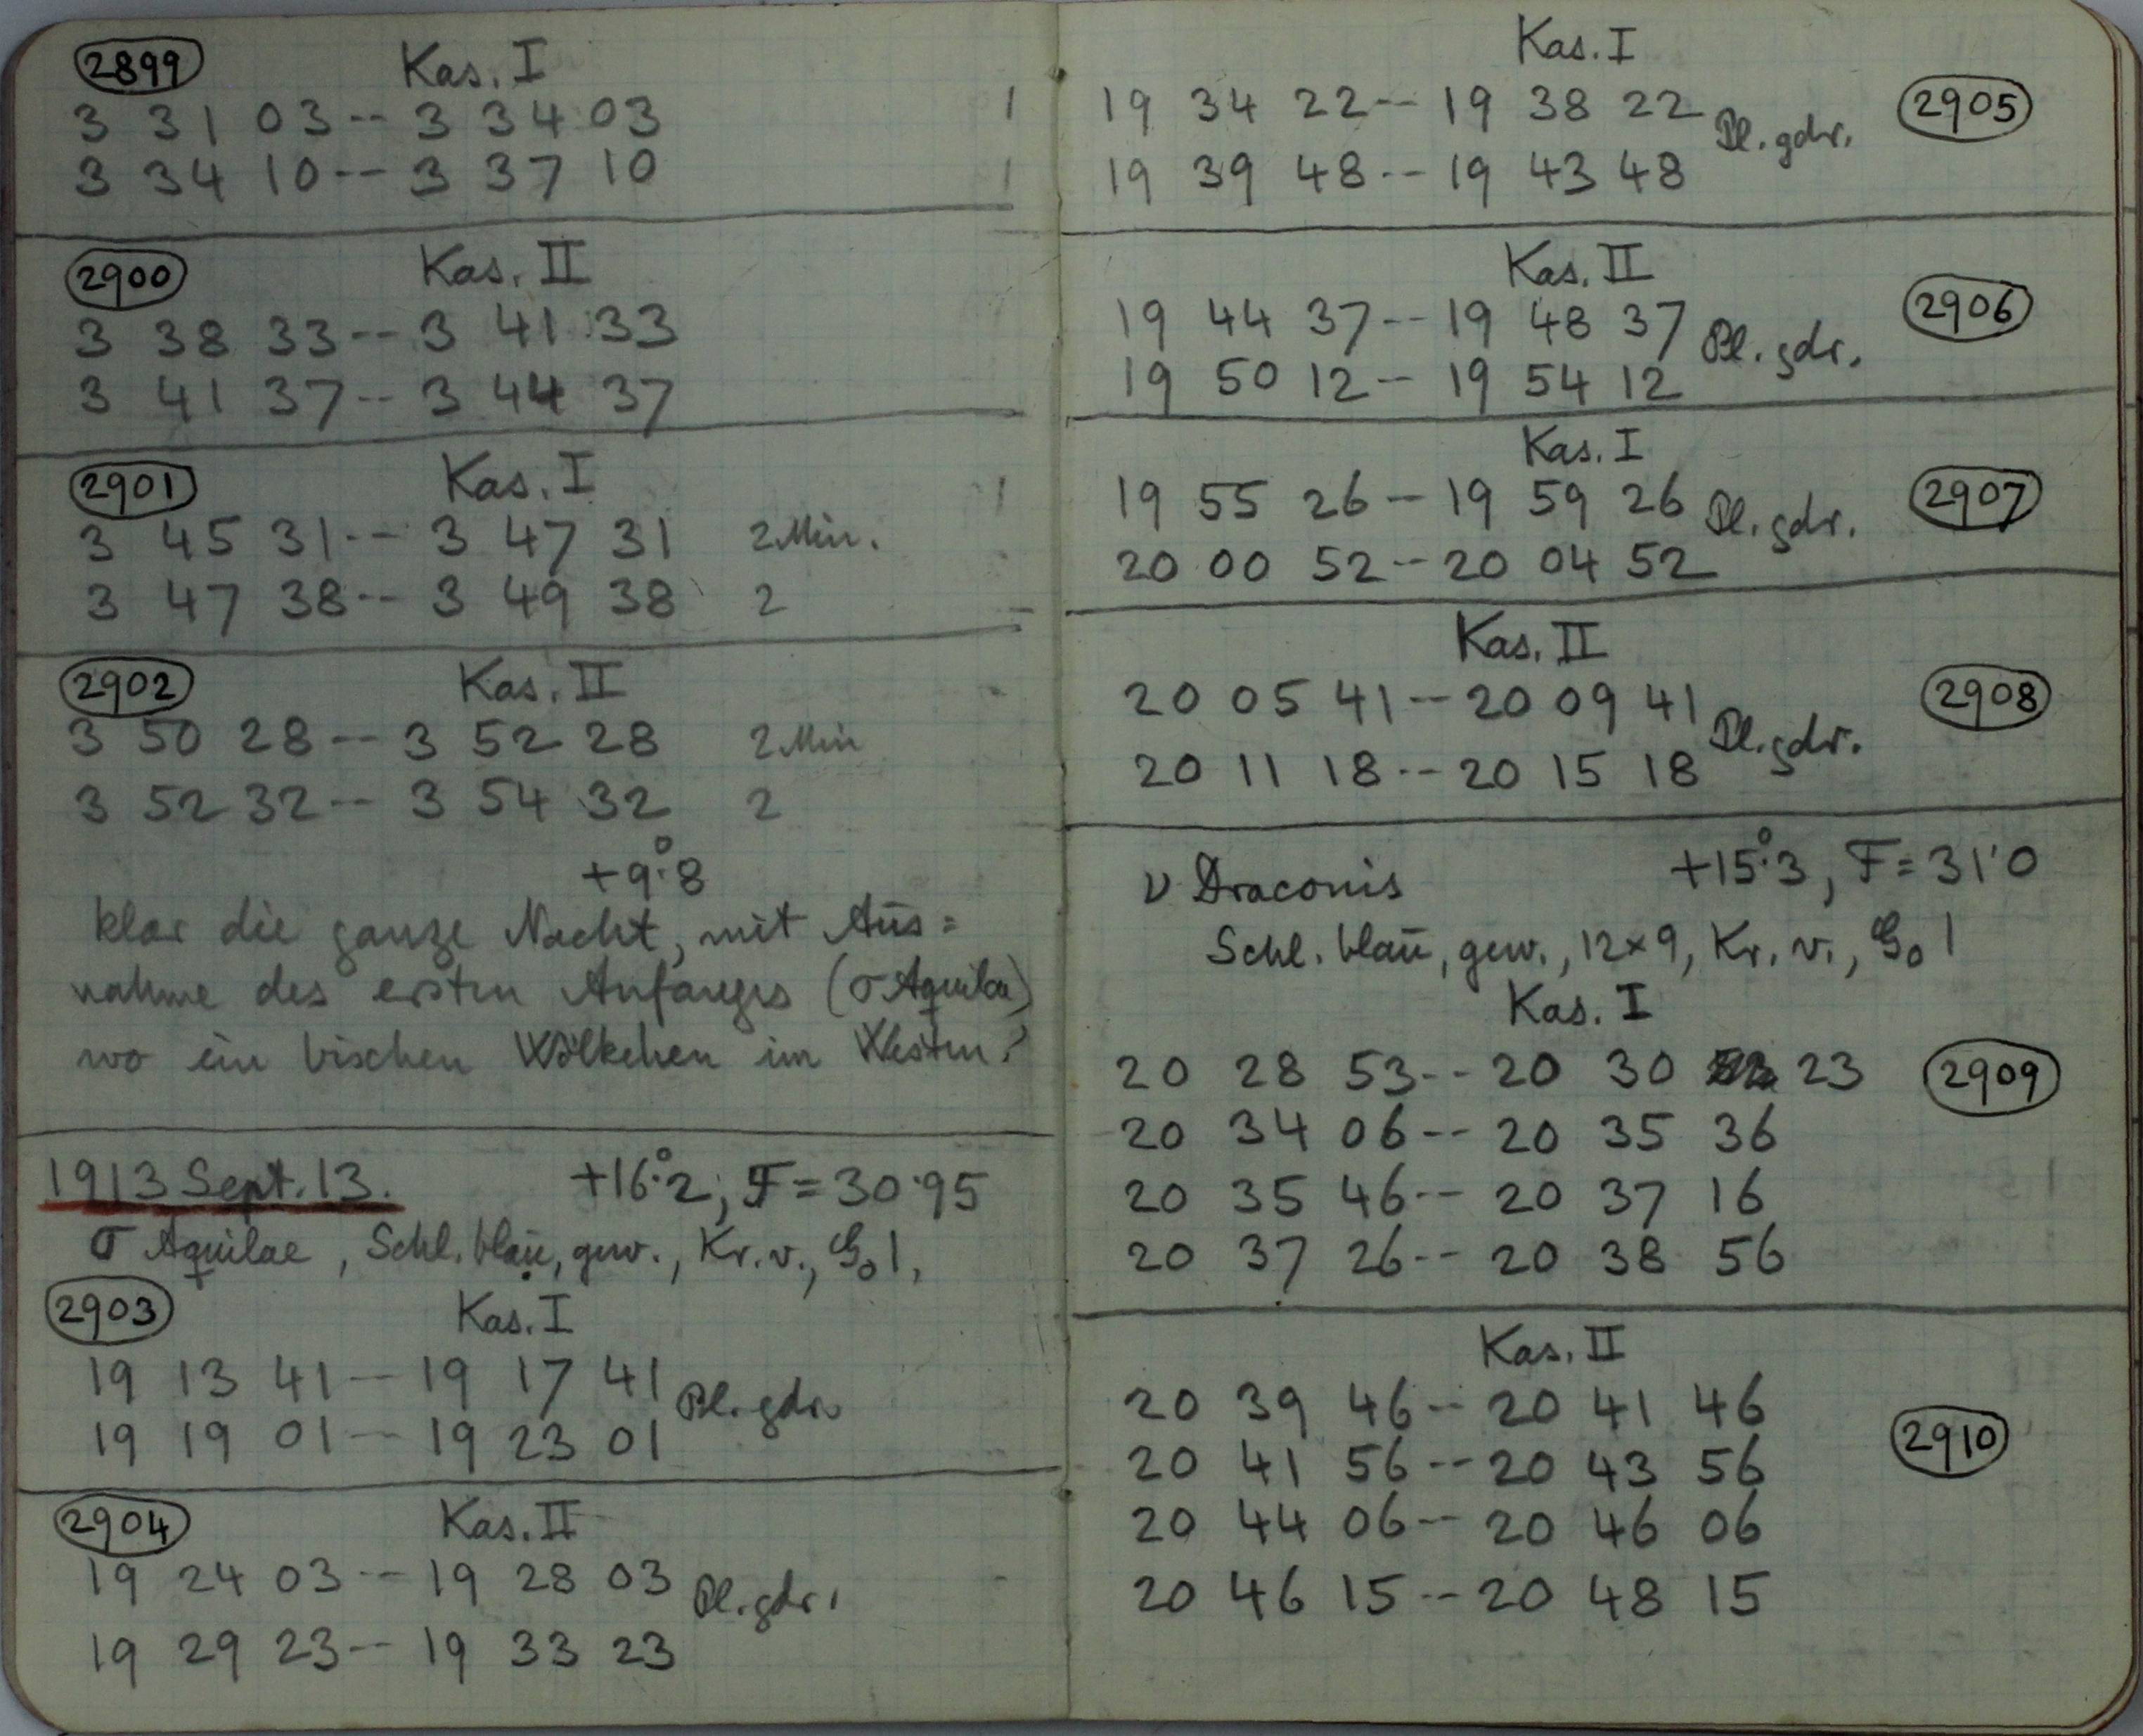 2899 Kas. I
3 31 03 -- 3 34 03
3 34 10 -- 3 37 10
2900 Kas. II
3 38 33 -- 3 41 33
3 41 37 -- 3 44 37
2901 Kas. I
3 45 31 -- 3 47 31 2 Min.
3 47 38 -- 3 49 38 2
2902 Kas. II
3 50 28 -- 3 52 28 2 Min
3 52 32 -- 3 54 32 2
+9°.8
klar die ganze Nacht, mit Aus=
nahme des ersten Anfanges (σ Aquilae)
wo ein bischen Wölkchen im Westen.
1913 Sept. 13. +16°.2; F = 30.95
σ Aquilae, Schl. blau, gew., Kr. v., G₀ 1,
2903 Kas. I
19 13 41 -- 19 17 41 Pl. gdr.
19 19 01 -- 19 23 01
2904 Kas. II
19 24 03 -- 19 28 03 Pl. gdr.
19 29 23 -- 19 33 23
Kas. I
19 34 22 -- 19 38 22 Pl. gdr. 2905
19 39 48 -- 19 43 48
Kas. II
19 44 37 -- 19 48 37 Pl. gdr. 2906
19 50 12 -- 19 54 12
Kas. I
19 55 26 -- 19 59 26 Pl. gdr. 2907
20 00 52 -- 20 04 52
Kas. II
20 05 41 -- 20 09 41 Pl. gdr. 2908
20 11 18 -- 20 15 18
ν Draconis +15°.3, F = 31'0
Schl. blau, gew., 12×9, Kr. v., G₀ 1
Kas. I
20 28 53 -- 20 30 23 2909
20 34 06 -- 20 35 36
20 35 46 -- 20 37 16
20 37 26 -- 20 38 56
Kas. II
20 39 46 -- 20 41 46
20 41 56 -- 20 43 56 2910
20 44 06 -- 20 46 06
20 46 15 -- 20 48 15